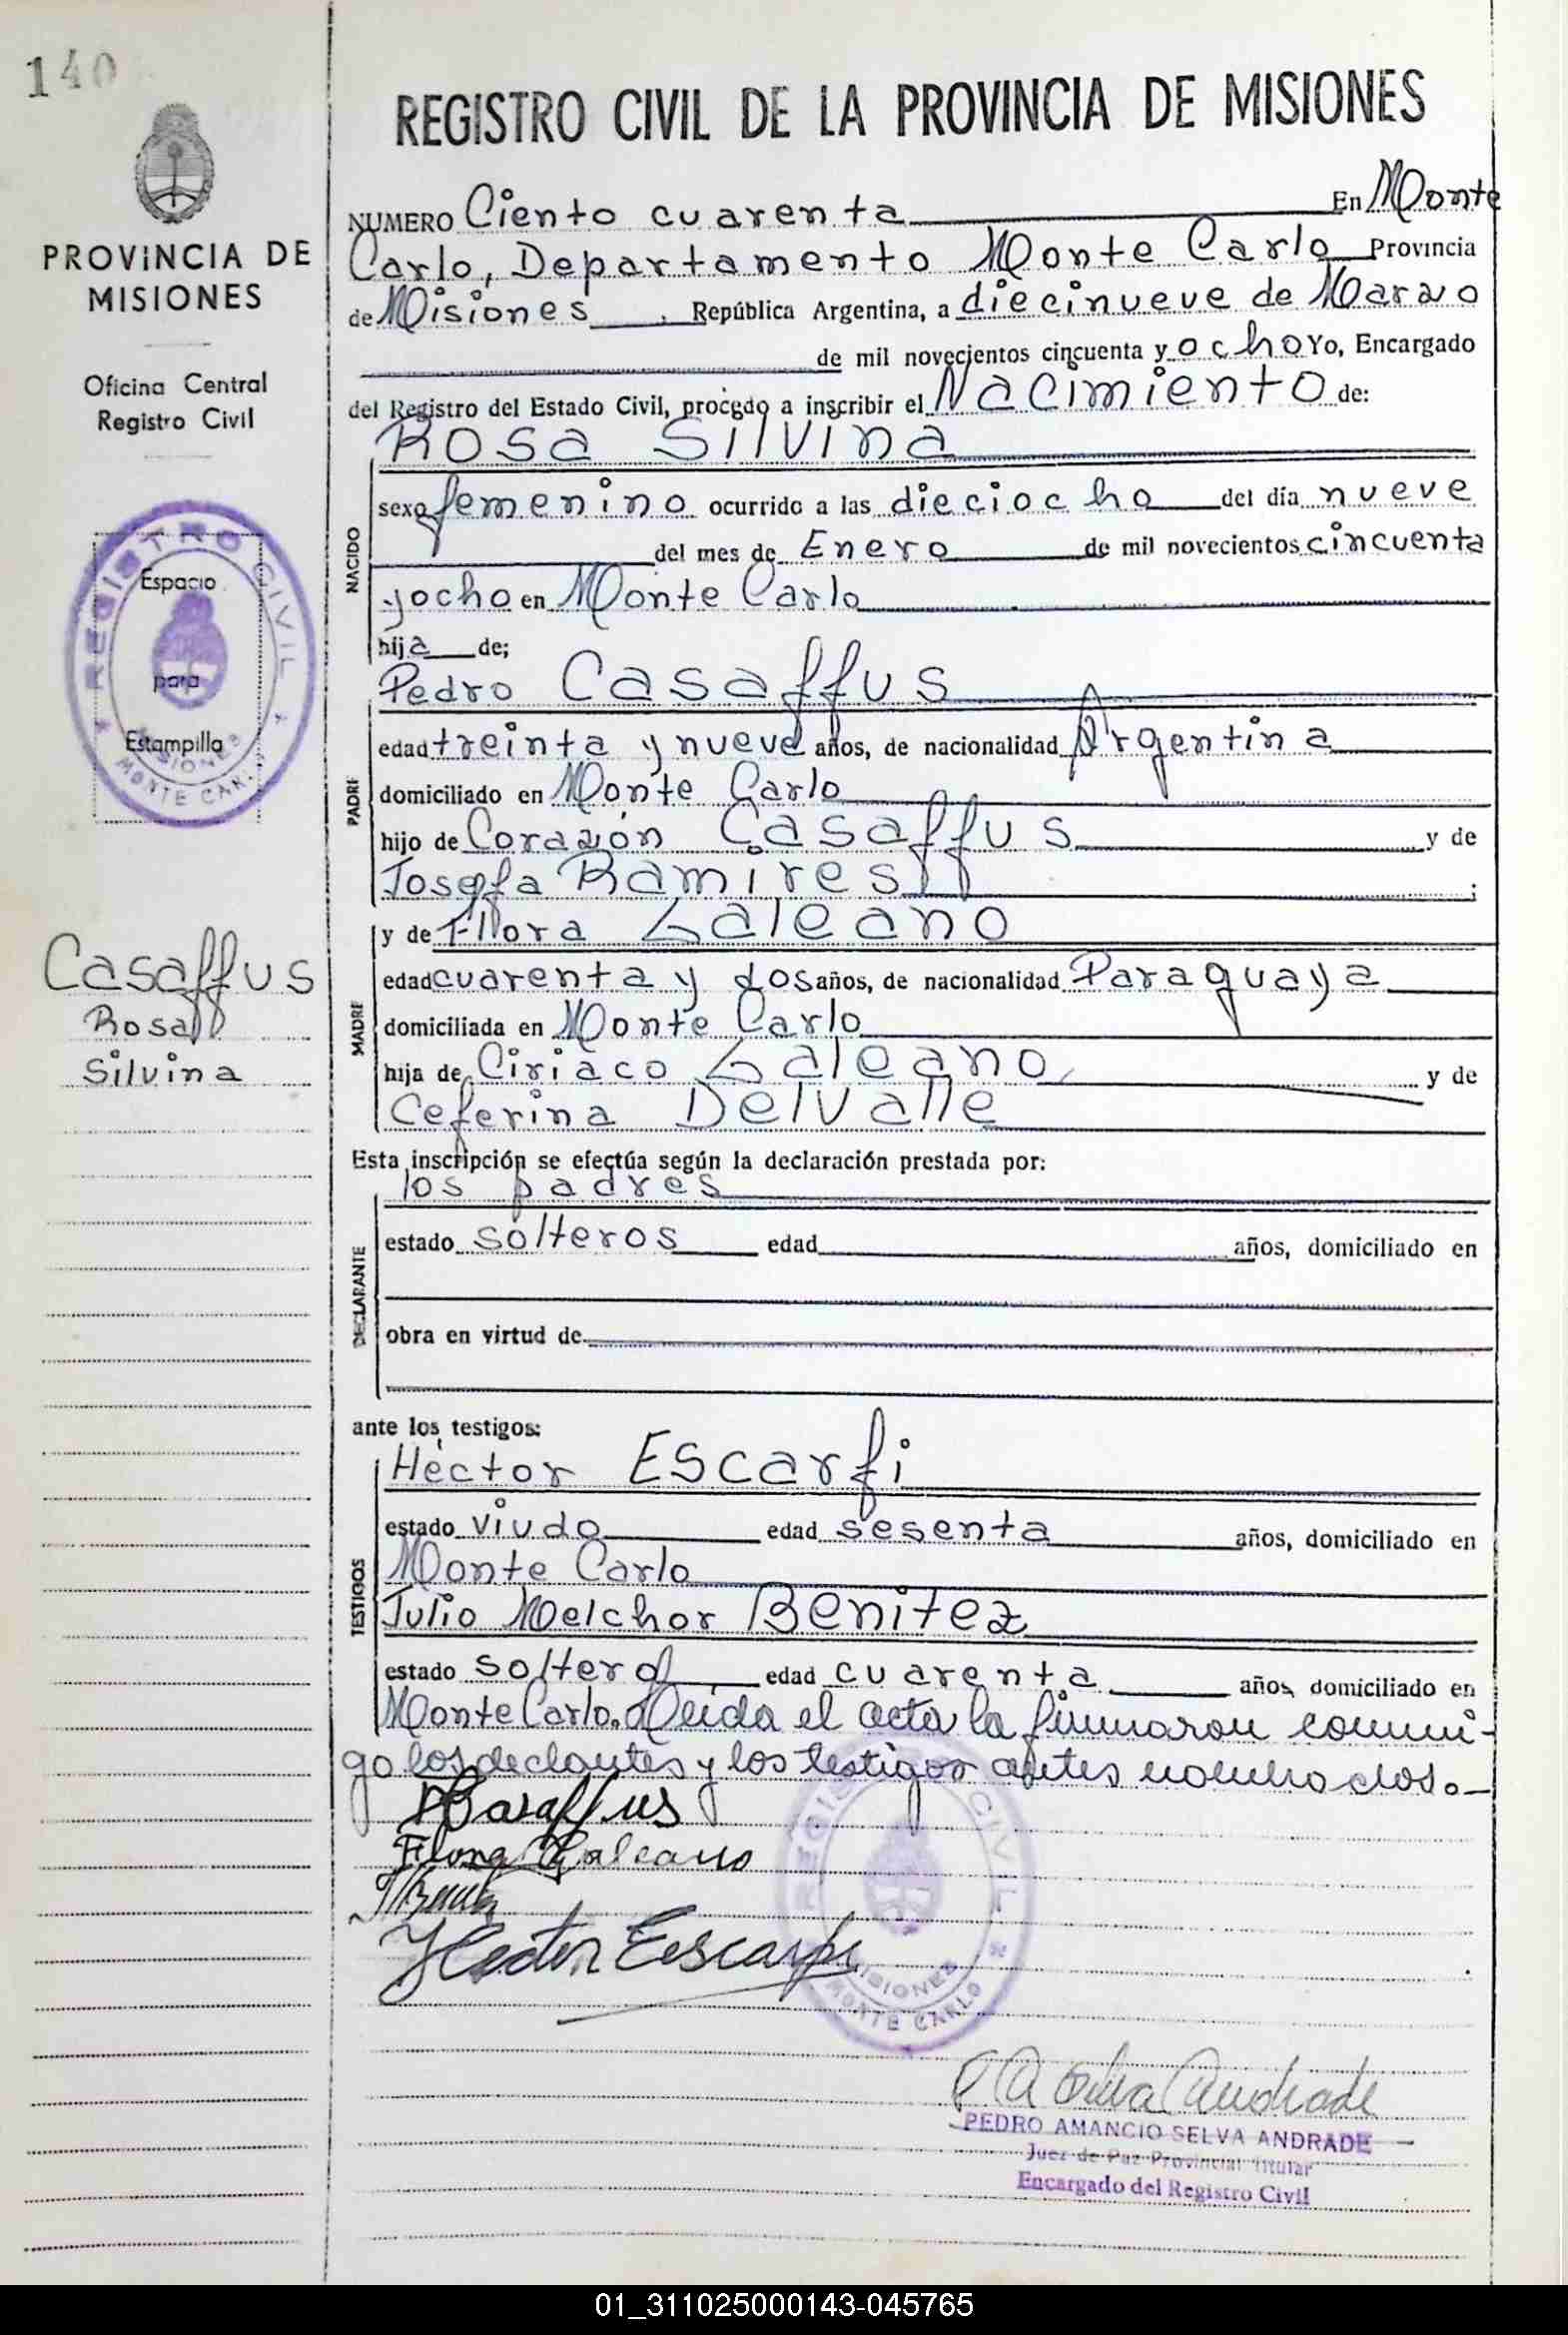 140
PROVINCIA DE
MISIONES
Oficina Central
Registro Civil
REGISTRO CIVIL
Espacio
para
Estampilla
MISIONES
MONTE CAR.
Casaffus
Rosa
Silvina
REGISTRO CIVIL DE LA PROVINCIA DE MISIONES
NUMERO Ciento cuarenta En Monte
Carlo, Departamento Monte Carlo Provincia
de Misiones, República Argentina, a diecinueve de Marzo
de mil novecientos cincuenta y ocho Yo, Encargado
del Registro del Estado Civil, procedo a inscribir el Nacimiento de:
Rosa Silvina
NACIDO
sexo femenino ocurrido a las dieciocho del día nueve
del mes de Enero de mil novecientos cincuenta
y ocho en Monte Carlo
hija de;
Pedro Casaffus
PADRE
edad treinta y nueve años, de nacionalidad Argentina
domiciliado en Monte Carlo
hijo de Corazón Casaffus y de
Josefa Ramires ;
MADRE
y de Flora Galeano
edad cuarenta y dos años, de nacionalidad Paraguaya
domiciliada en Monte Carlo
hija de Ciriaco Galeano y de
Ceferina Delvalle
Esta inscripción se efectúa según la declaración prestada por:
los padres
DECLARANTE
estado solteros edad años, domiciliado en
obra en virtud de
ante los testigos:
Héctor Escarfi
TESTIGOS
estado viudo edad sesenta años, domiciliado en
Monte Carlo
Julio Melchor Benitez
estado soltero edad cuarenta años, domiciliado en
Monte Carlo. Leida el acta la firmaron conmi-
go los declantes y los testigos antes nombrados.
Casaffus
Flora Galeano
Hector Escarfi
REGISTRO CIVIL
MISIONES
MONTE CARLO
P A Selva Andrade
PEDRO AMANCIO SELVA ANDRADE
Juez de Paz Provincial Titular
Encargado del Registro Civil
01_311025000143-045765